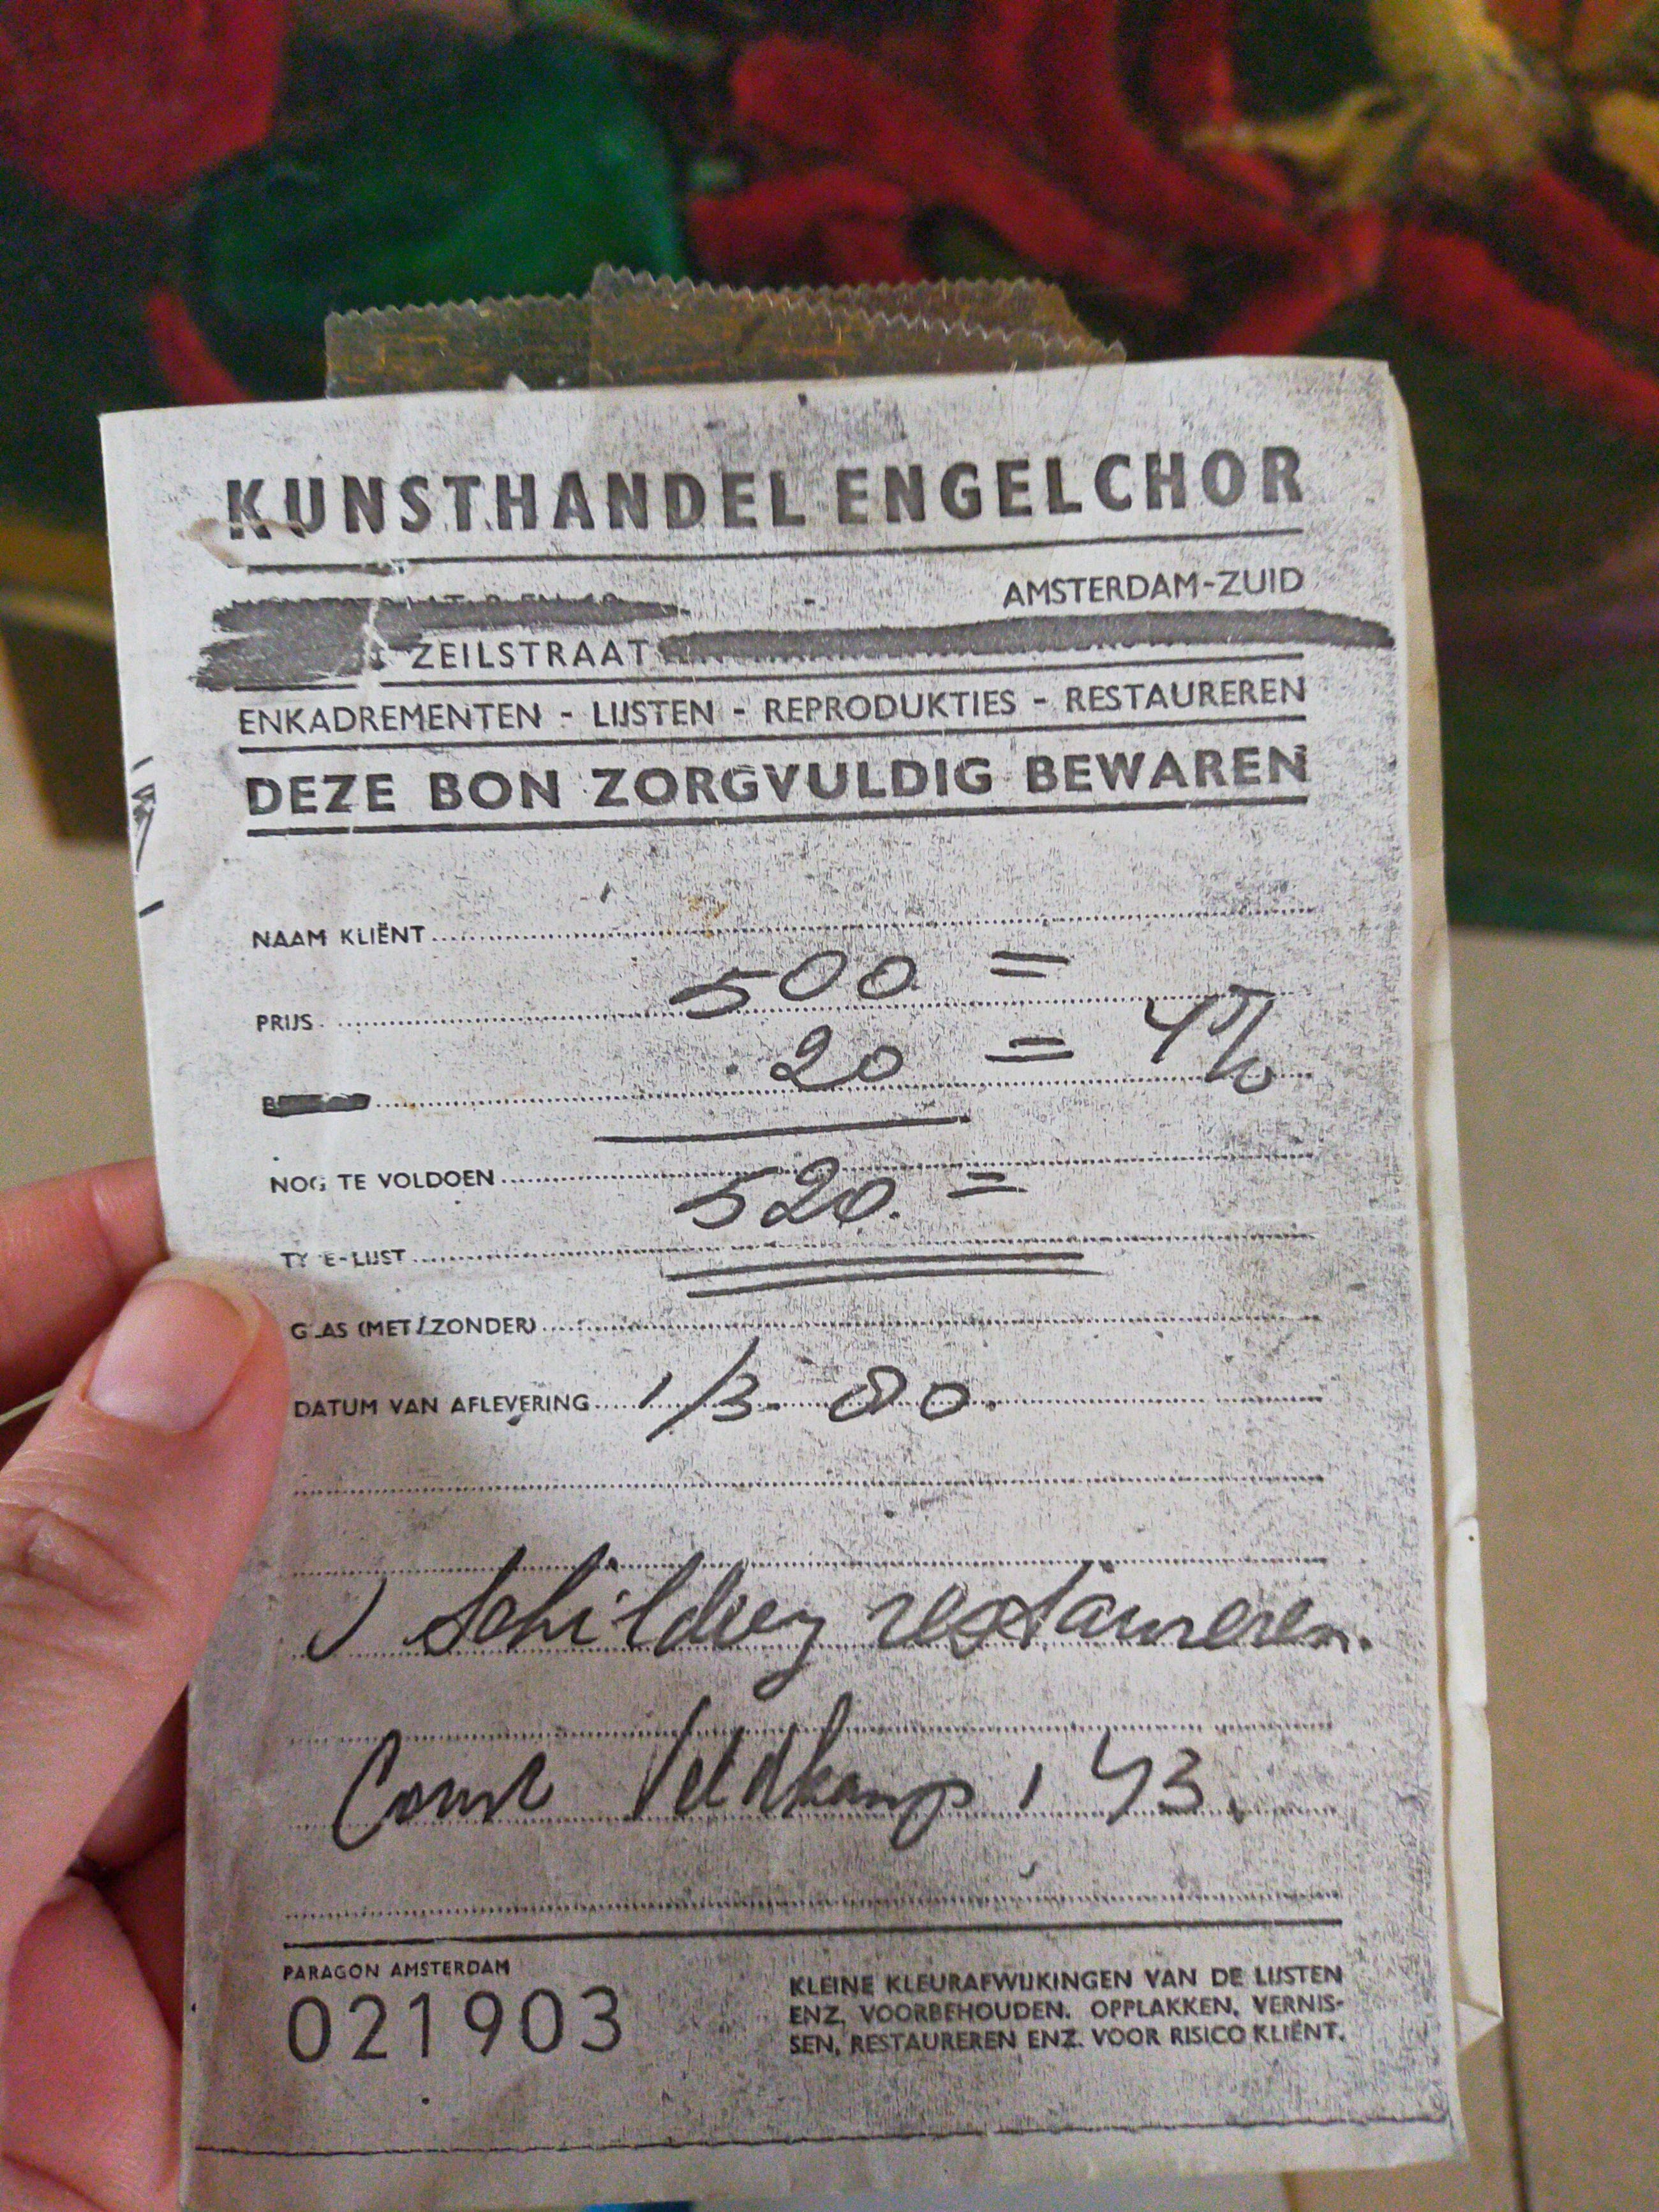 KUNSTHANDEL ENGELCHOR
AMSTERDAM-ZUID
ZEILSTRAAT
ENKADREMENTEN - LIJSTEN - REPRODUKTIES - RESTAUREREN
DEZE BON ZORGVULDIG BEWAREN
NAAM KLIËNT
PRIJS 500 =
20 = 4%
NOG TE VOLDOEN 520. =
TY E-LIJST
GLAS (MET/ZONDER)
DATUM VAN AFLEVERING 1/3-80.
1 Schildery restaureren.
Veldkamp, 43.
PARAGON AMSTERDAM
021903
KLEINE KLEURAFWIJKINGEN VAN DE LIJSTEN
ENZ. VOORBEHOUDEN. OPPLAKKEN, VERNIS-
SEN, RESTAUREREN ENZ. VOOR RISICO KLIËNT.